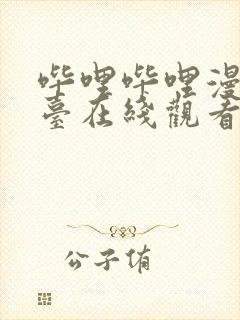 哔哩哔哩漫
臺在綫觀看
公子侑